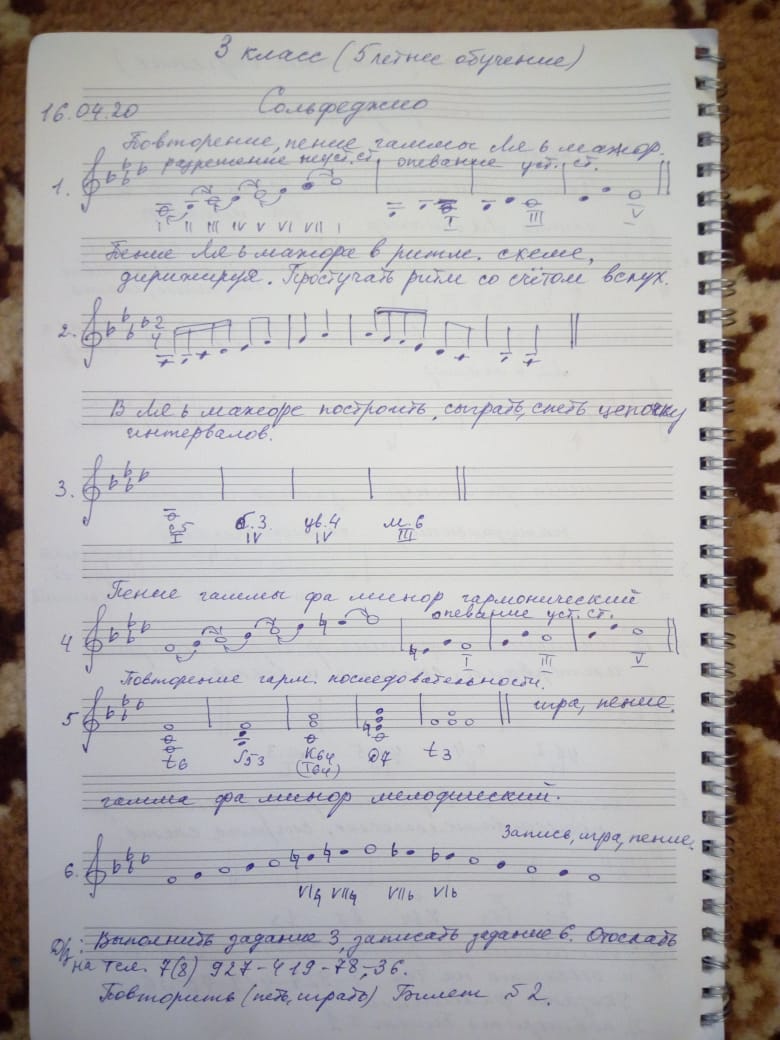 3 класс (5 летнее обучение)
16.04.20 Сольфеджио
Повторение, пение гаммы Ля ь мажор.
разрешение неуст. ст. опевание уст. ст.
1.
I II III IV V VI VII I I III V
Пение Ля ь мажора в ритм. схеме,
дирижируя. Простучать ритм со счётом вслух.
2. 2
4
В Ля ь мажоре построить, сыграть, спеть цепочку
интервалов.
3.
ч.5 б.3. ув.4 м.6
I IV IV III
Пение гаммы фа минор гармонический
опевание уст. ст.
4
I III V
Повторение гарм. последовательности.
игра, пение.
5
t6 S53 K64 D7 t3
(T64)
гамма фа минор мелодический.
Запись, игра, пение.
6.
VI♮ VII♮ VII♭ VI♭
Д/з: Выполнить задание 3, записать задание 6. Отослать
на тел. 7(8) 927-419-78-36.
Повторить (петь, играть) Билет №2.